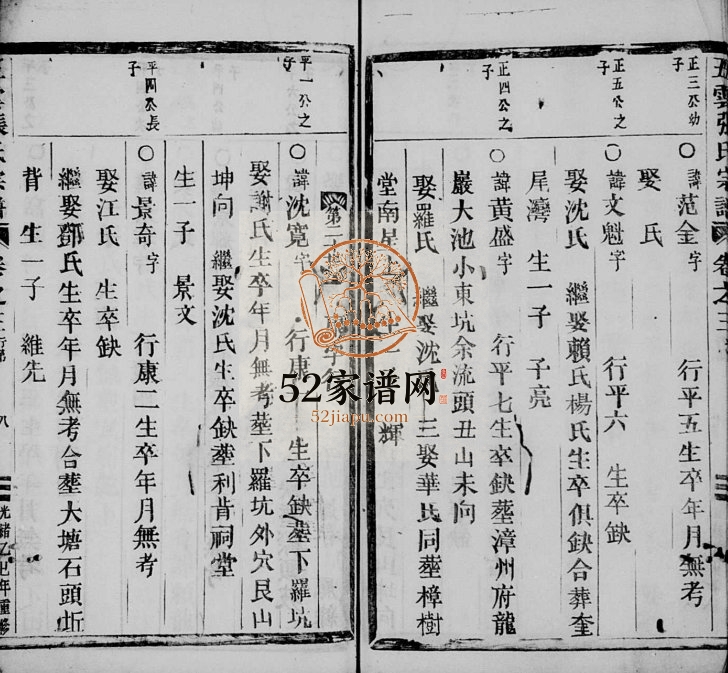 正三公幼子
○諱范金字 行平五生卒年月無考
娶 氏
正五公之子
○諱文魁字 行平六 生卒缺
娶沈氏 繼娶賴氏楊氏生卒俱缺合葬奎
尾灣 生一子 子亮
正四公之子
○諱黃盛字 行平七生卒缺塟漳州府龍
巖大池小東坑余流頭丑山未向
娶羅氏 繼娶沈 三娶華氏同塟樟樹
堂南 輝
第二十
平一公之子
○諱沈寬字 行康一 生卒缺塟下羅坑
娶謝氏生卒年月無考塟下羅坑外穴艮山
坤向 繼娶沈氏生卒缺塟利背祠堂
生一子 景文
平四公長子
○諱景奇字 行康二生卒年月無考
娶江氏 生卒缺
繼娶鄧氏生卒年月無考合塟大塘石頭坵
背 生一子 維先
張氏宗譜 卷之三 八
光緒乙巳年重修
52家谱网
52jiapu.com